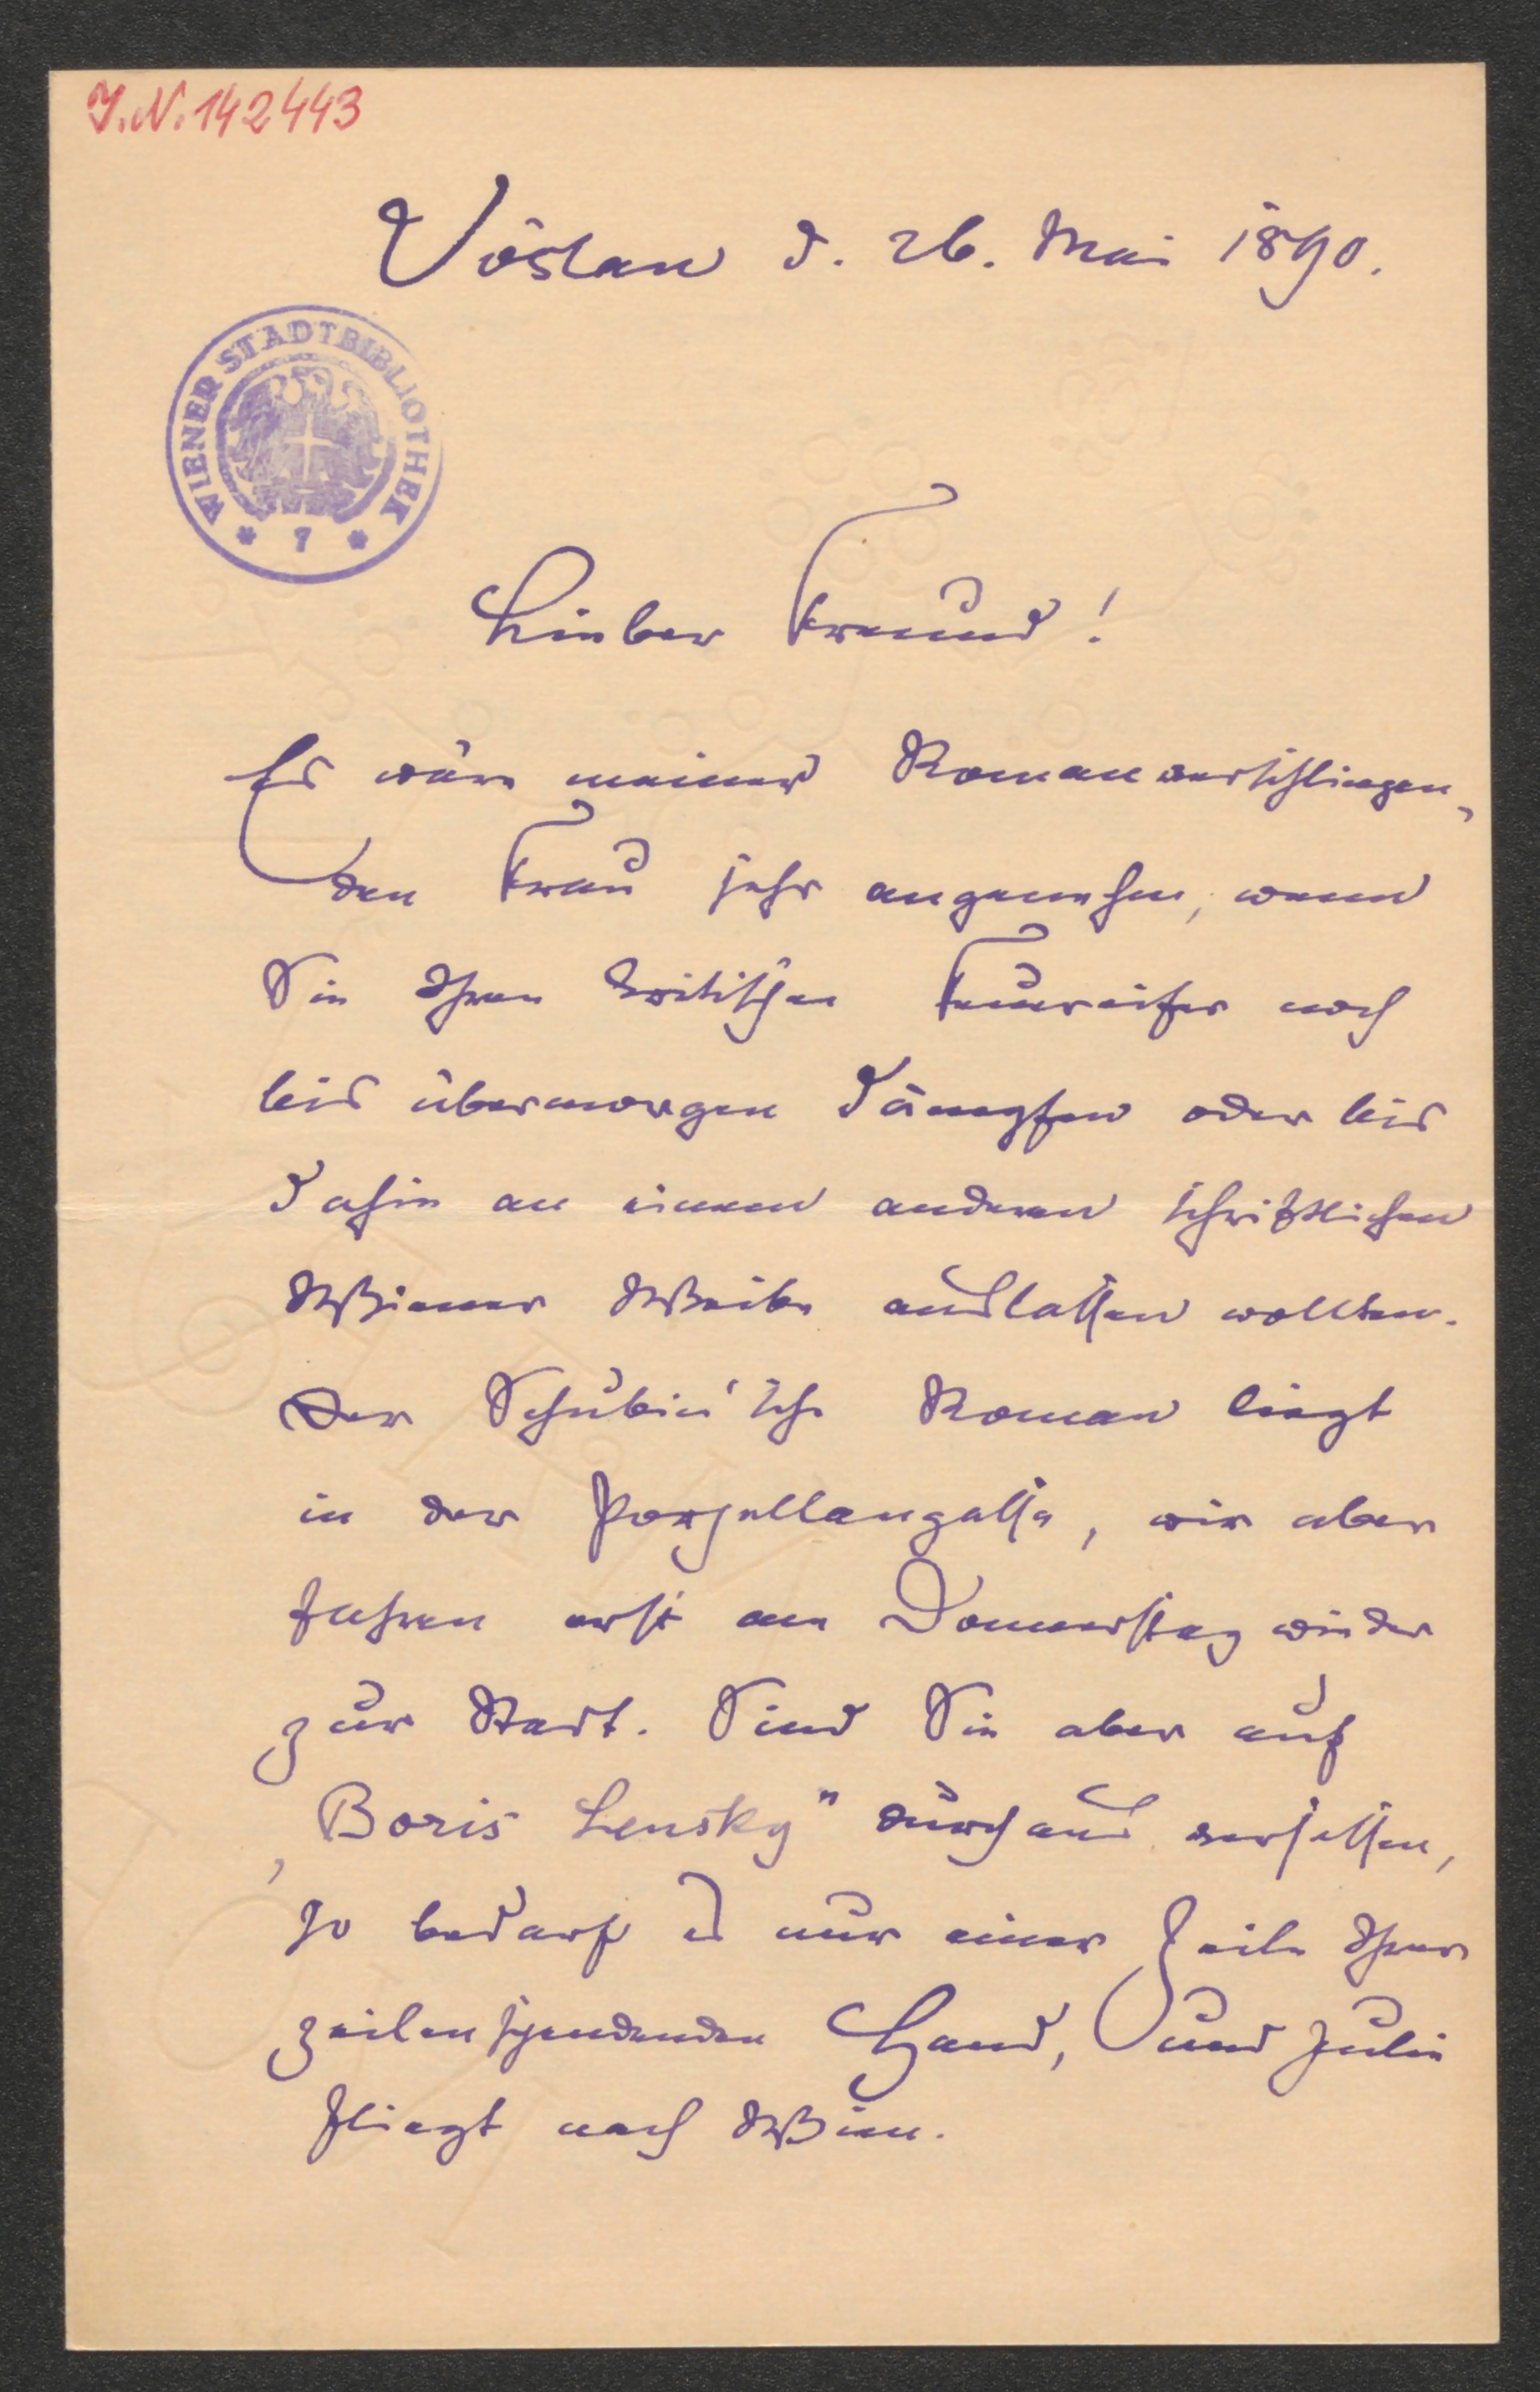 I.N. 142443
Vöslau d. 26. Mai 1890.
WIENER STADTBIBLIOTHEK
* 7 *
Lieber Freund!
Es wäre meiner Romanverschlingen-
den Frau sehr angenehm, wenn
Sie Ihren kritischen Feuereifer noch
bis übermorgen dämpfen oder bis
dahin an einem anderen schriftlichen
Wiener Weibe auslassen wollten.
Der Schubin'sche Roman liegt
in der Porzellangasse, wir aber
fahren erst am Donnerstag wieder
zur Stadt. Sind Sie aber auf
„Boris Lensky" durchaus versessen,
so bedarf es nur einer Zeile Ihrer
zeilenspendenden Hand, und Julie
fliegt nach Wien.